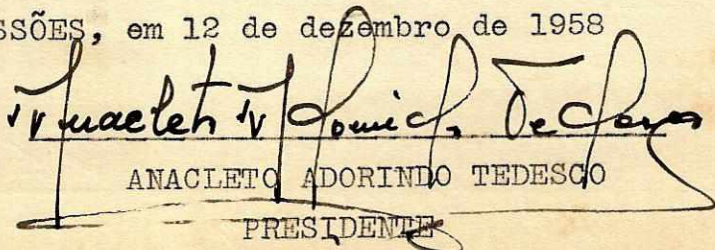 SSÕES, em 12 de dezembro de 1958
Anacleto Adorindo Tedesco
ANACLETO ADORINDO TEDESCO
PRESIDENTE